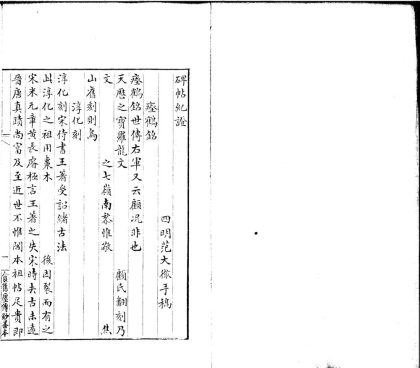 碑帖紀證
四明范大澈手稿
瘞鶴銘
瘞鶴銘世傳右軍又云顧況非也
天曆之寶羅龍文 顧氏翻刻乃
文 之七嶺南黎惟敬 焦
山舊刻則為
淳化刻
淳化刻宋侍書王著受詔緒古法
此淳化之祖用棗木 後因裂而有之
宋米元章黃長睿極言王著之失宋時去古法遠
晉唐真蹟尚富及至近世不惟閣本祖帖足貴即
一